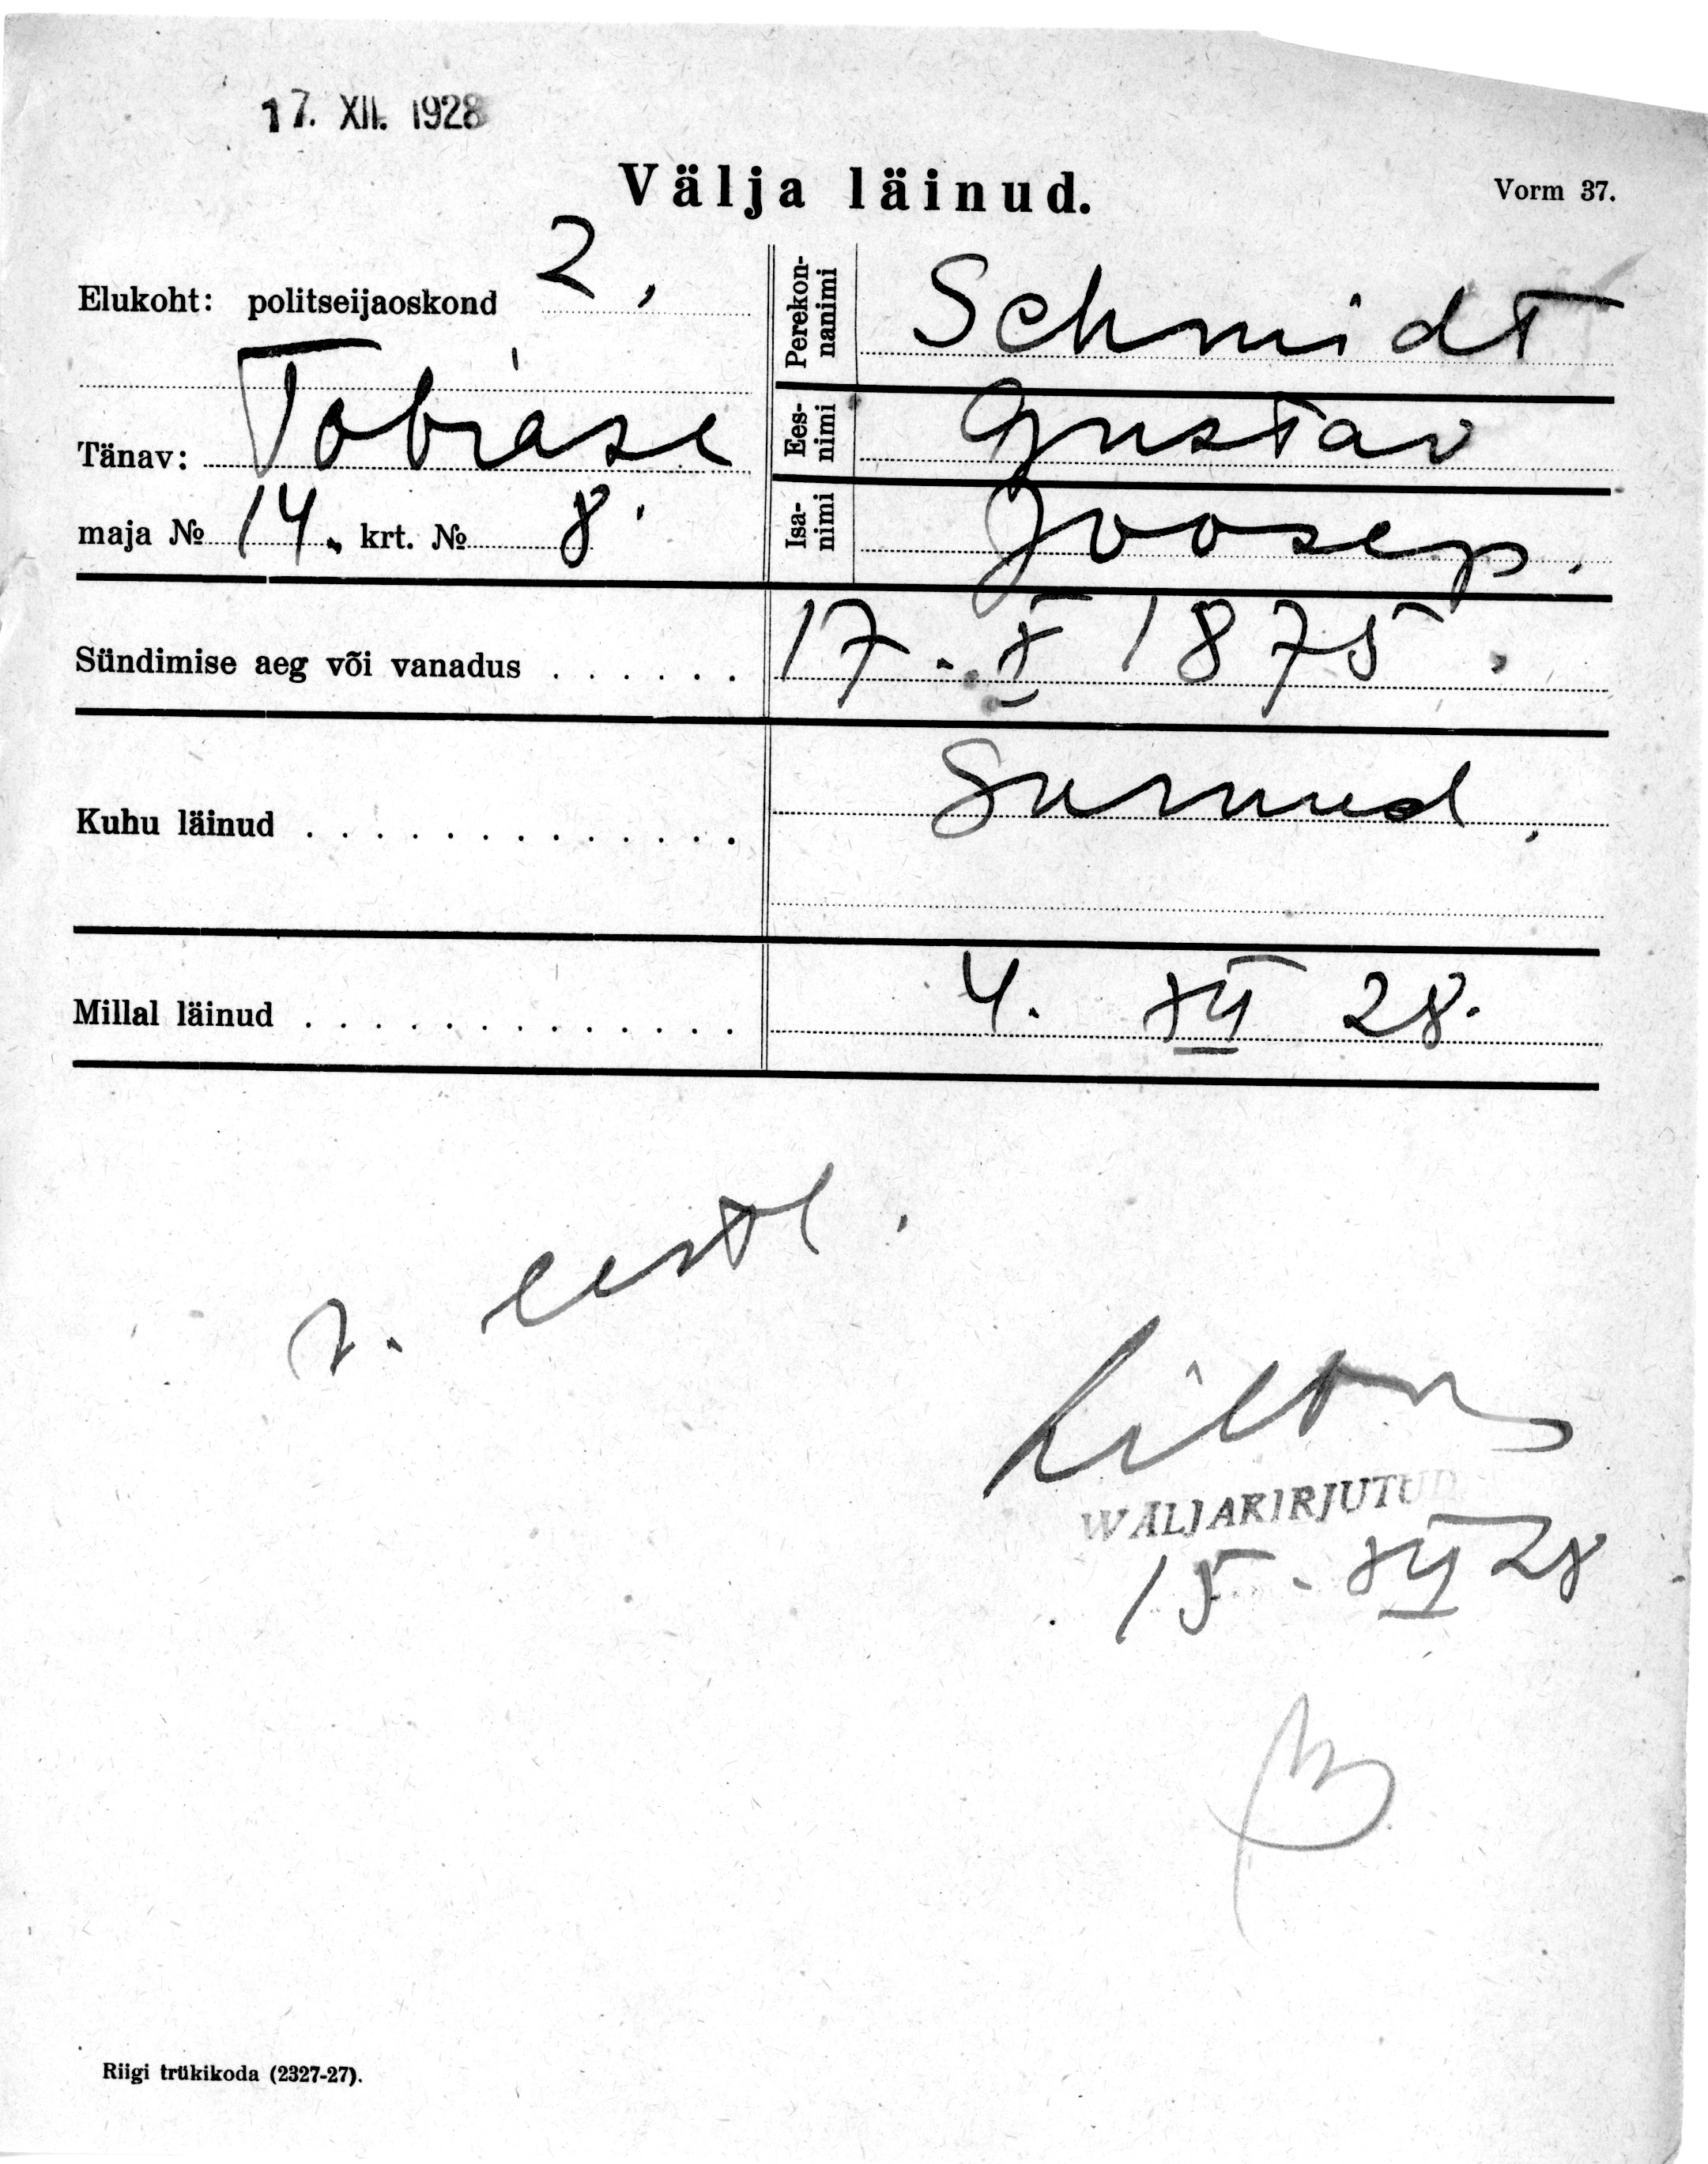 17. XII. 1928
Välja läinud.
Vorm 37.
Elukoht: politseijaoskond 2,
Tänav: Tobiase
maja № 14. krt. № 8.
Perekonnanimi Schmidt
Eesnimi Gustav
Isanimi Joosep.
Sündimise aeg või vanadus . . . . . . 17. X 1875.
Kuhu läinud . . . . . . . . . . . . . Surnud.
Millal läinud . . . . . . . . . . . . . 4. XII 28.
WÄLJAKIRJUTUD
15. XII 28
Riigi trükikoda (2327-27).